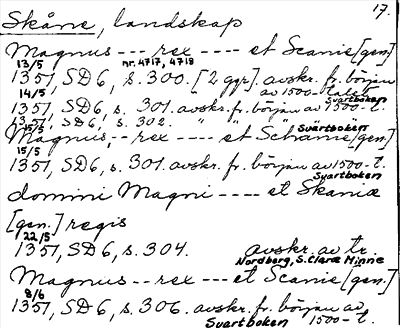 Skåne, landskap 17.
Magnus --- rex ---- et Scanie [gen]
13/5 nr. 4717, 4718
1351, SD6, s. 300. [2 ggr]. avskr. fr. början
14/5 av 1500-talet
Svartboken
1351, SD6, s. 301. avskr. fr. början av 1500-t.
15/5, SD6, s. 302. " " " "
Svartboken
Magnus, -- rex ---- et Schanie [gen]
15/5
1351, SD6, s. 301. avskr. fr. början av 1500-t.
Svartboken
domini Magni ---- et Skaniæ
[gen.] regis
22/5
1351, SD6, s. 304. avskr. av tr.
Nordberg, S. Claræ Minne
Magnus -- rex --- et Scanie [gen]
8/6
1351, SD6, s. 306. avskr. fr. början av
Svartboken 1500-t.